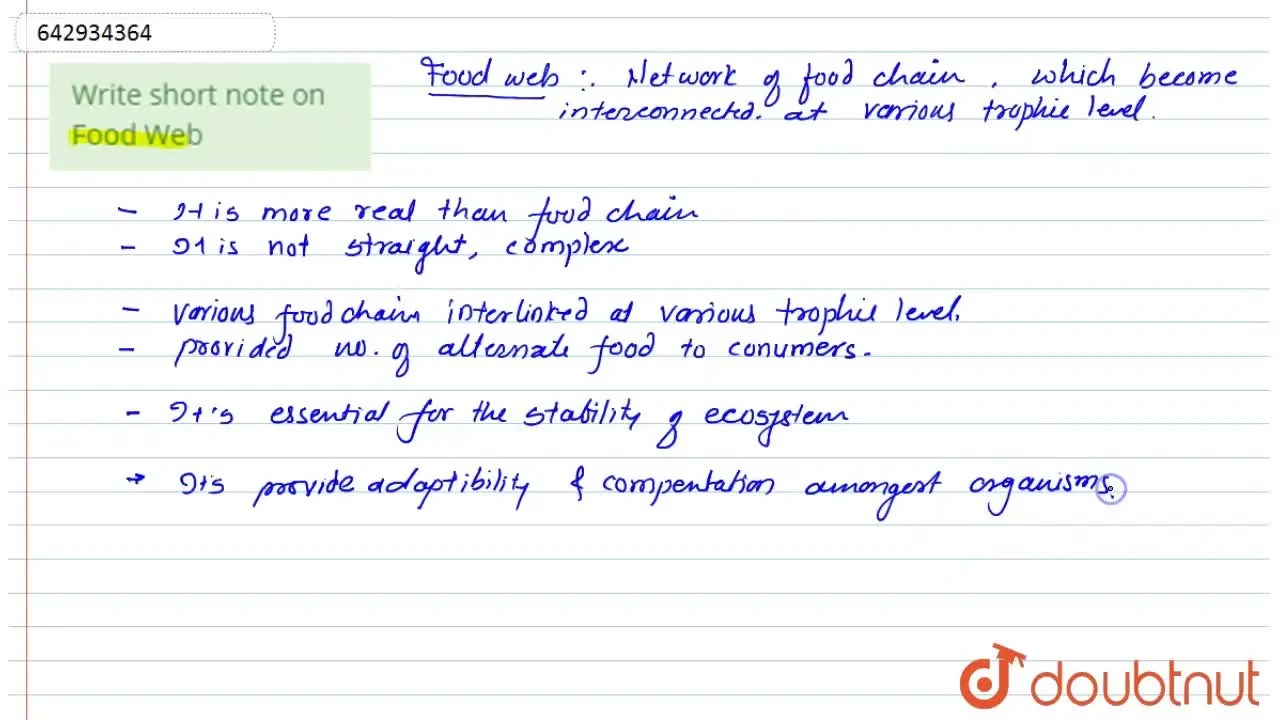 642934364
Write short note on
Food Web
Food web :. Network of food chain, which become
interconnected. at various trophic level.
- It is more real than food chain
- It is not straight, complex
- various food chain interlinked at various trophic level.
- provided no. of alternate food to conumers.
- It's essential for the stability of ecosystem
→ It's provide adaptibility & compentation amongest organisms.
doubtnut